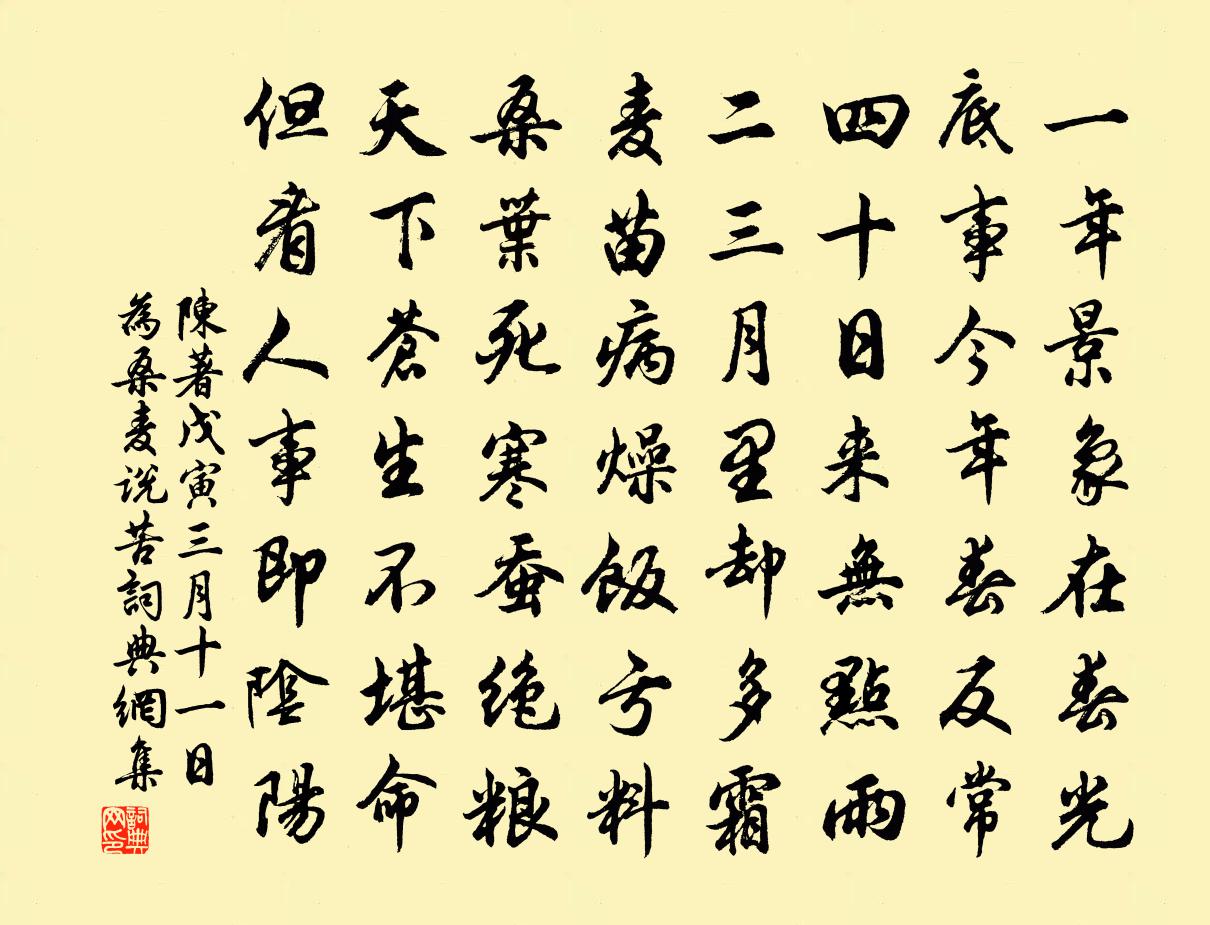 一年景象在春光
底事今年春反常
四十日来無點雨
二三月里却多霜
麦苗病燥飯亏料
桑葉死寒蚕绝粮
天下蒼生不堪命
但看人事即陰陽
陳著戊寅三月十一日
為桑麦说苦詞典網集
詞典
网印